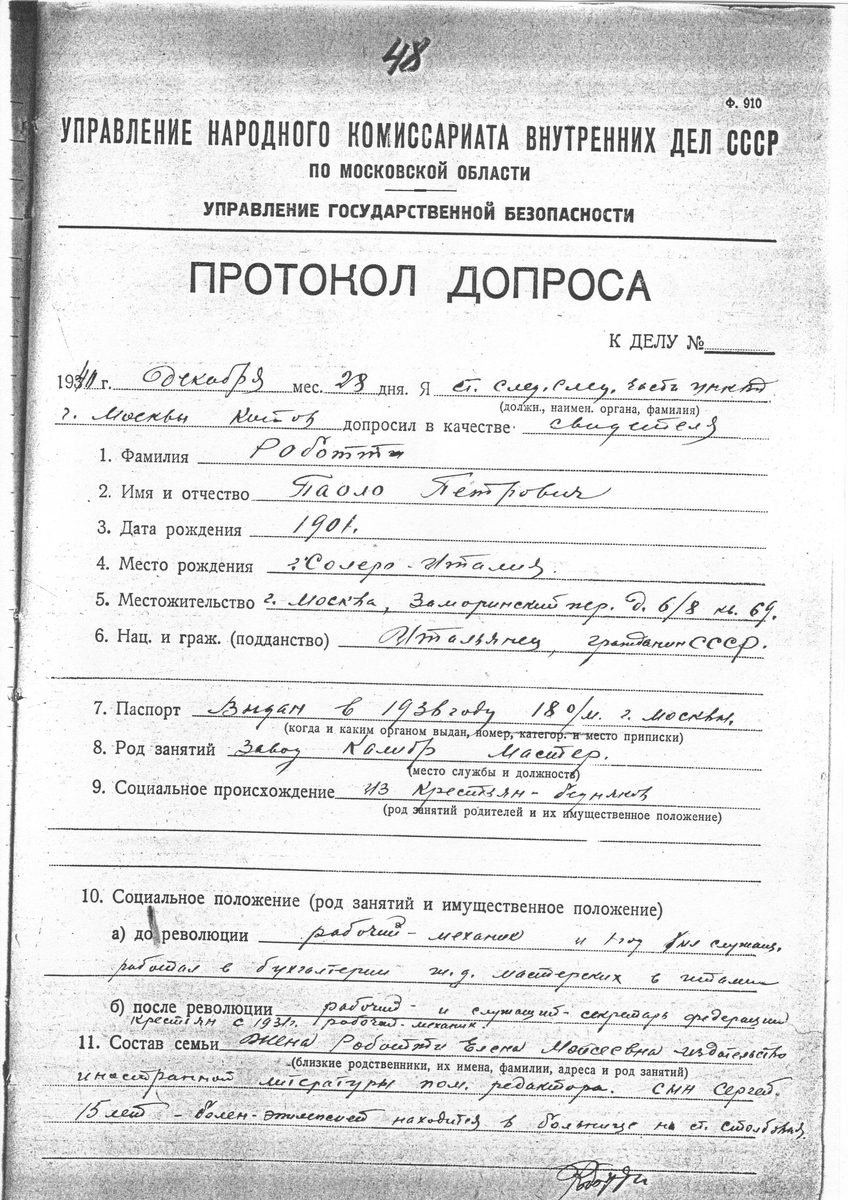 48
Ф. 910
УПРАВЛЕНИЕ НАРОДНОГО КОМИССАРИАТА ВНУТРЕННИХ ДЕЛ СССР
ПО МОСКОВСКОЙ ОБЛАСТИ
УПРАВЛЕНИЕ ГОСУДАРСТВЕННОЙ БЕЗОПАСНОСТИ
ПРОТОКОЛ ДОПРОСА
К ДЕЛУ №
1940 г. Декабря мес. 28 дня. Я ст. след. след. часть УНКВД
(должн., наимен. органа, фамилия)
г. Москвы допросил в качестве свидетеля
1. Фамилия Роботти
2. Имя и отчество Паоло Петрович
3. Дата рождения 1901.
4. Место рождения г. Солеро - Италия.
5. Местожительство г. Москва, пер. д. 6/8 кв. 69.
6. Нац. и граж. (подданство) Итальянец, гражданин СССР.
7. Паспорт Выдан в 1936 году 18 о/м. г. Москвы.
(когда и каким органом выдан, номер, категор. и место приписки)
8. Род занятий Завод Калибр Мастер.
(место службы и должность)
9. Социальное происхождение из крестьян - бедняков
(род занятий родителей и их имущественное положение)
10. Социальное положение (род занятий и имущественное положение)
а) до революции рабочий - механик и 1 год был служащ.
работал в бухгалтерии ж.д. мастерских в Италии
б) после революции рабочий - и служащий - секретарь федерации
крестьян с 1931г. рабочий - механик.
11. Состав семьи Жена Роботти Елена Моисеевна издательство
(близкие родственники, их имена, фамилии, адреса и род занятий)
иностранной литературы пом. редактора. сын Сергей.
15 лет - болен - находится в больнице на ст. Столбовая